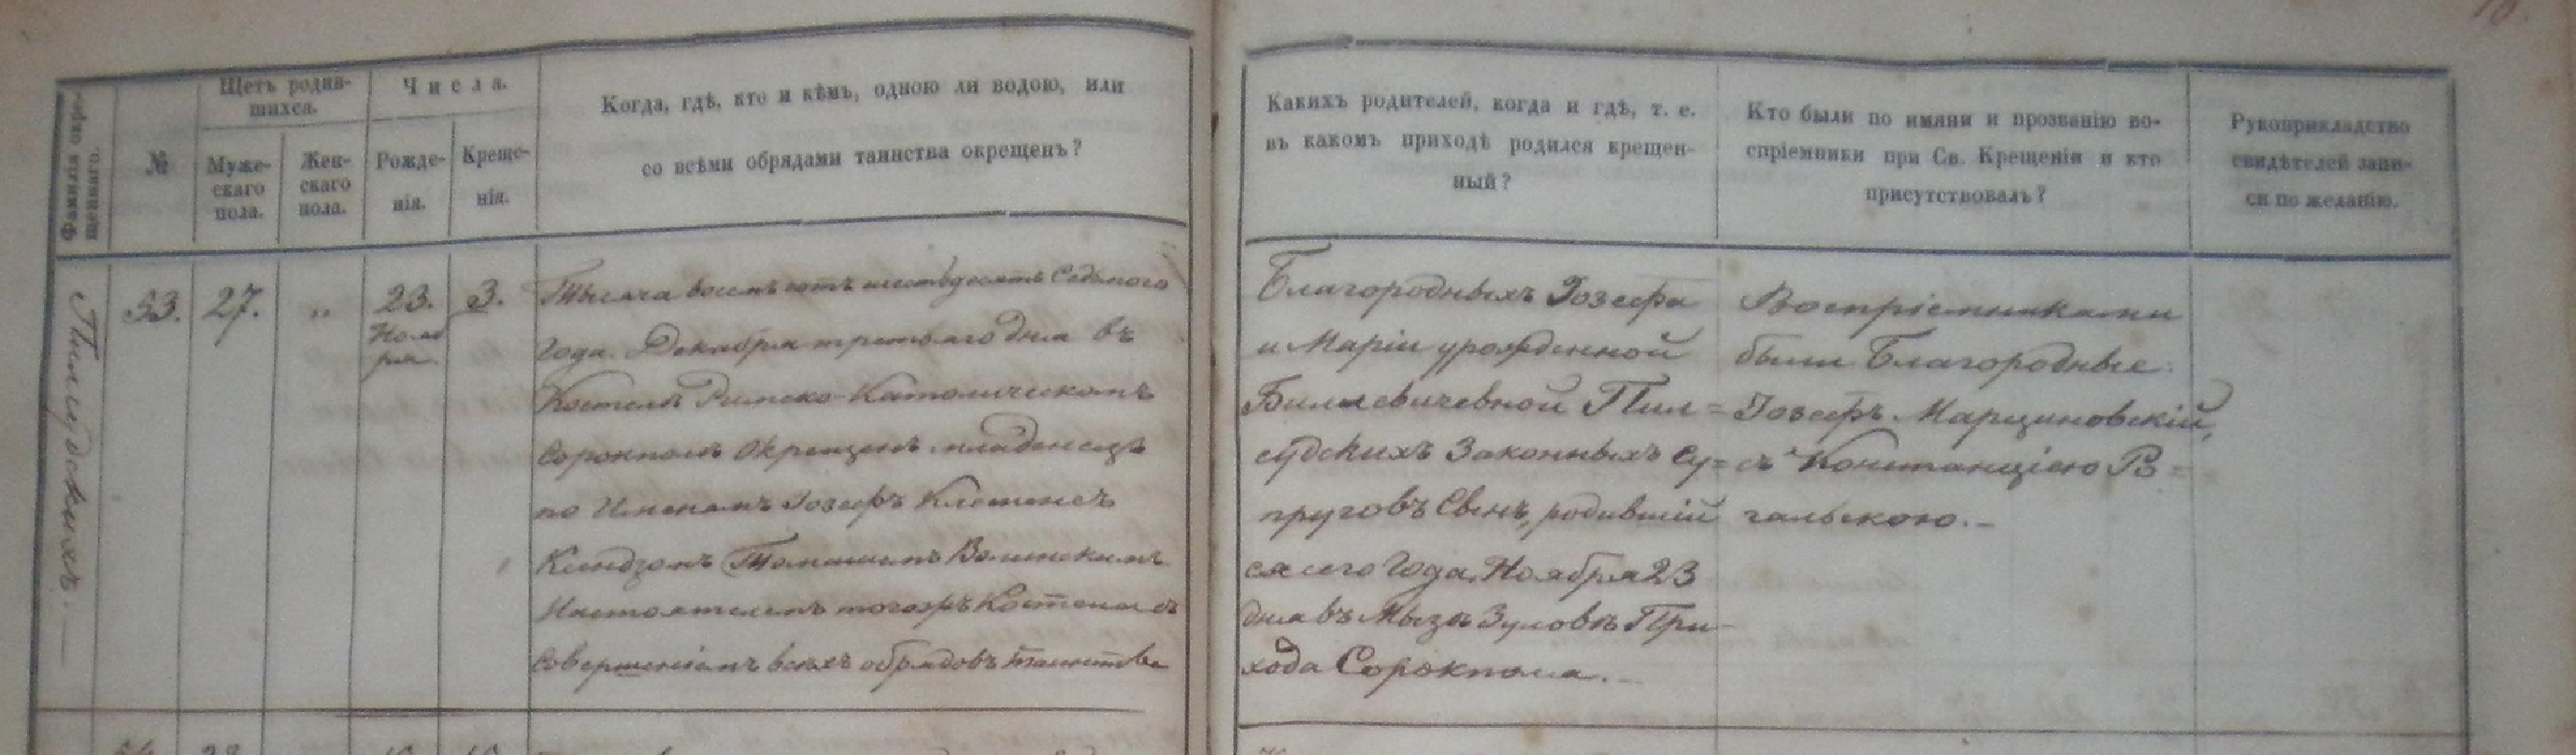 Фамилія окре-
щеннаго.
№
Щетъ родив-
шихся.
Муже-
скаго
пола.
Жен-
скаго
пола.
Числа.
Рожде-
нія.
Креще-
нія.
Когда, гдѣ, кто и кѣмъ, одною ли водою, или
со всѣми обрядами таинства окрещенъ?
Каких родителей, когда и гдѣ, т. е.
въ какомъ приходѣ родился крещен-
ный?
Кто были по имяни и прозванію во-
спріемники при Св. Крещеніи и кто
присутствовалъ?
Рукоприкладство
свидѣтелей запи-
си по желанію.
Пилсудскихъ.—
53.
27.
„
23.
Нояб
ря.
3.
Тысяча восемьсотъ шестьдесятъ Седьмого
года Декабря третьяго дня въ
Костелѣ Римско-Католическомъ
Сорокполь Окрещенъ младенецъ
по Именамъ Іозефъ Клеменсъ
Ксендзомъ Томашемъ Валинскимъ
Настоятелемъ тогожъ Костела съ
Совершеніемъ всѣхъ обрядовъ таинства
Благородныхъ Іозефа
и Маріи урожденной
Билевичевной Пил=
судскихъ Законныхъ Су=
пруговъ Сынъ, родившій
ся сего Года, Ноября 23
дня въ Мызѣ Зуловѣ При-
хода Сорокпола.—
Воспріемниками
были Благородные:
Іозефъ Марциновскій,
съ Констанціею Ро=
гальскою.—
54.
28